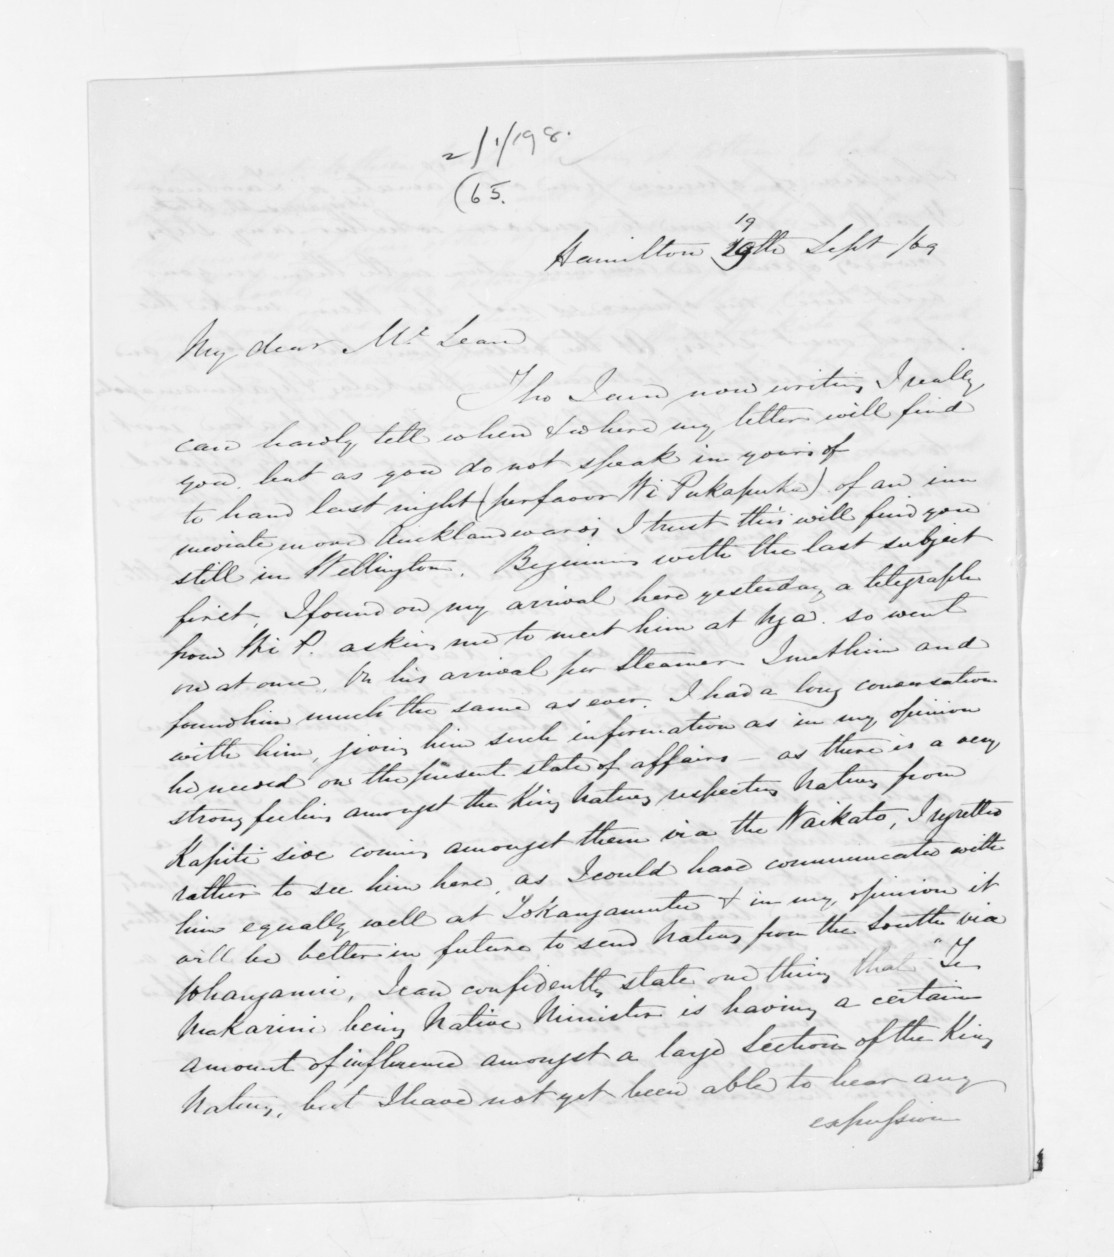 2/1/198.
(65.
19
Hamilton 19th Sept /69
My dear Mr Lean
Tho I am now writing I really
can hardly tell when & where my letter will find
you, but as you do not speak in yours of
to hand last night (per favor Wi Pukapuka) of an imm
mediate move Aucklandwards I trust this will find you
still in Wellington. Begining with the last subject
first, I found on my arrival here yesterday a telegraph
from Wi P. asking me to meet him at Nga. so went
on at once, On his arrival per Steamer I met him and
found him much the same as ever. I had a long conversation
with him, giving him such information as in my opinion
he needed on the present state of affairs – as there is a very
strong feeling amongst the King Natives respecting Natives from
Kapiti side coming amongst them via the Waikato, I regretted
rather to see him here, as I could have communicated with
him equally well at Tokangamutu & in my opinion it
will be better in future to send Natives from the South via
Whanganui, I can confidently state one thing that "Te
Makarini being Native Minister is having a certain
amount of influence amongst a large Section of the King
Natives, but I have not yet been able to hear any
expression